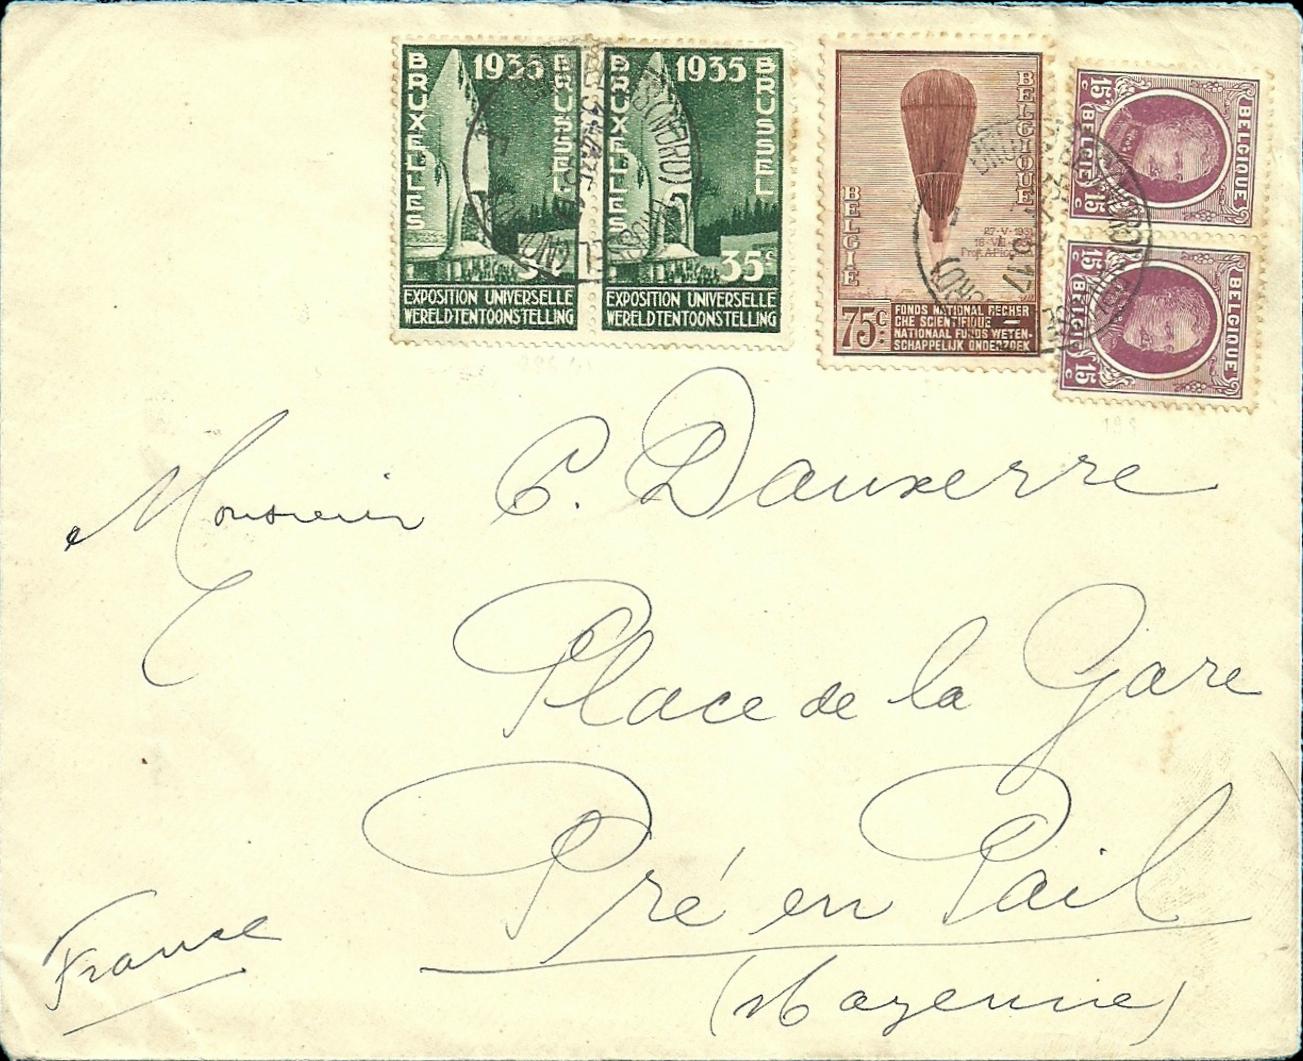 BRUXELLES 1935 BRUSSEL
EXPOSITION UNIVERSELLE
WERELDTENTOONSTELLING
BRUXELLES 1935 BRUSSEL
35c
EXPOSITION UNIVERSELLE
WERELDTENTOONSTELLING
BELGIQUE
BELGIË
27-V-1931
75c
FONDS NATIONAL RECHER
CHE SCIENTIFIQUE —
NATIONAAL FONDS WETEN-
SCHAPPELIJK ONDERZOEK
15c BELGIQUE
BELGIË 15c
15c BELGIQUE
BELGIË 15c
Monsieur C. Dauxerre
Place de la Gare
Pré en Pail
(Mayenne)
France